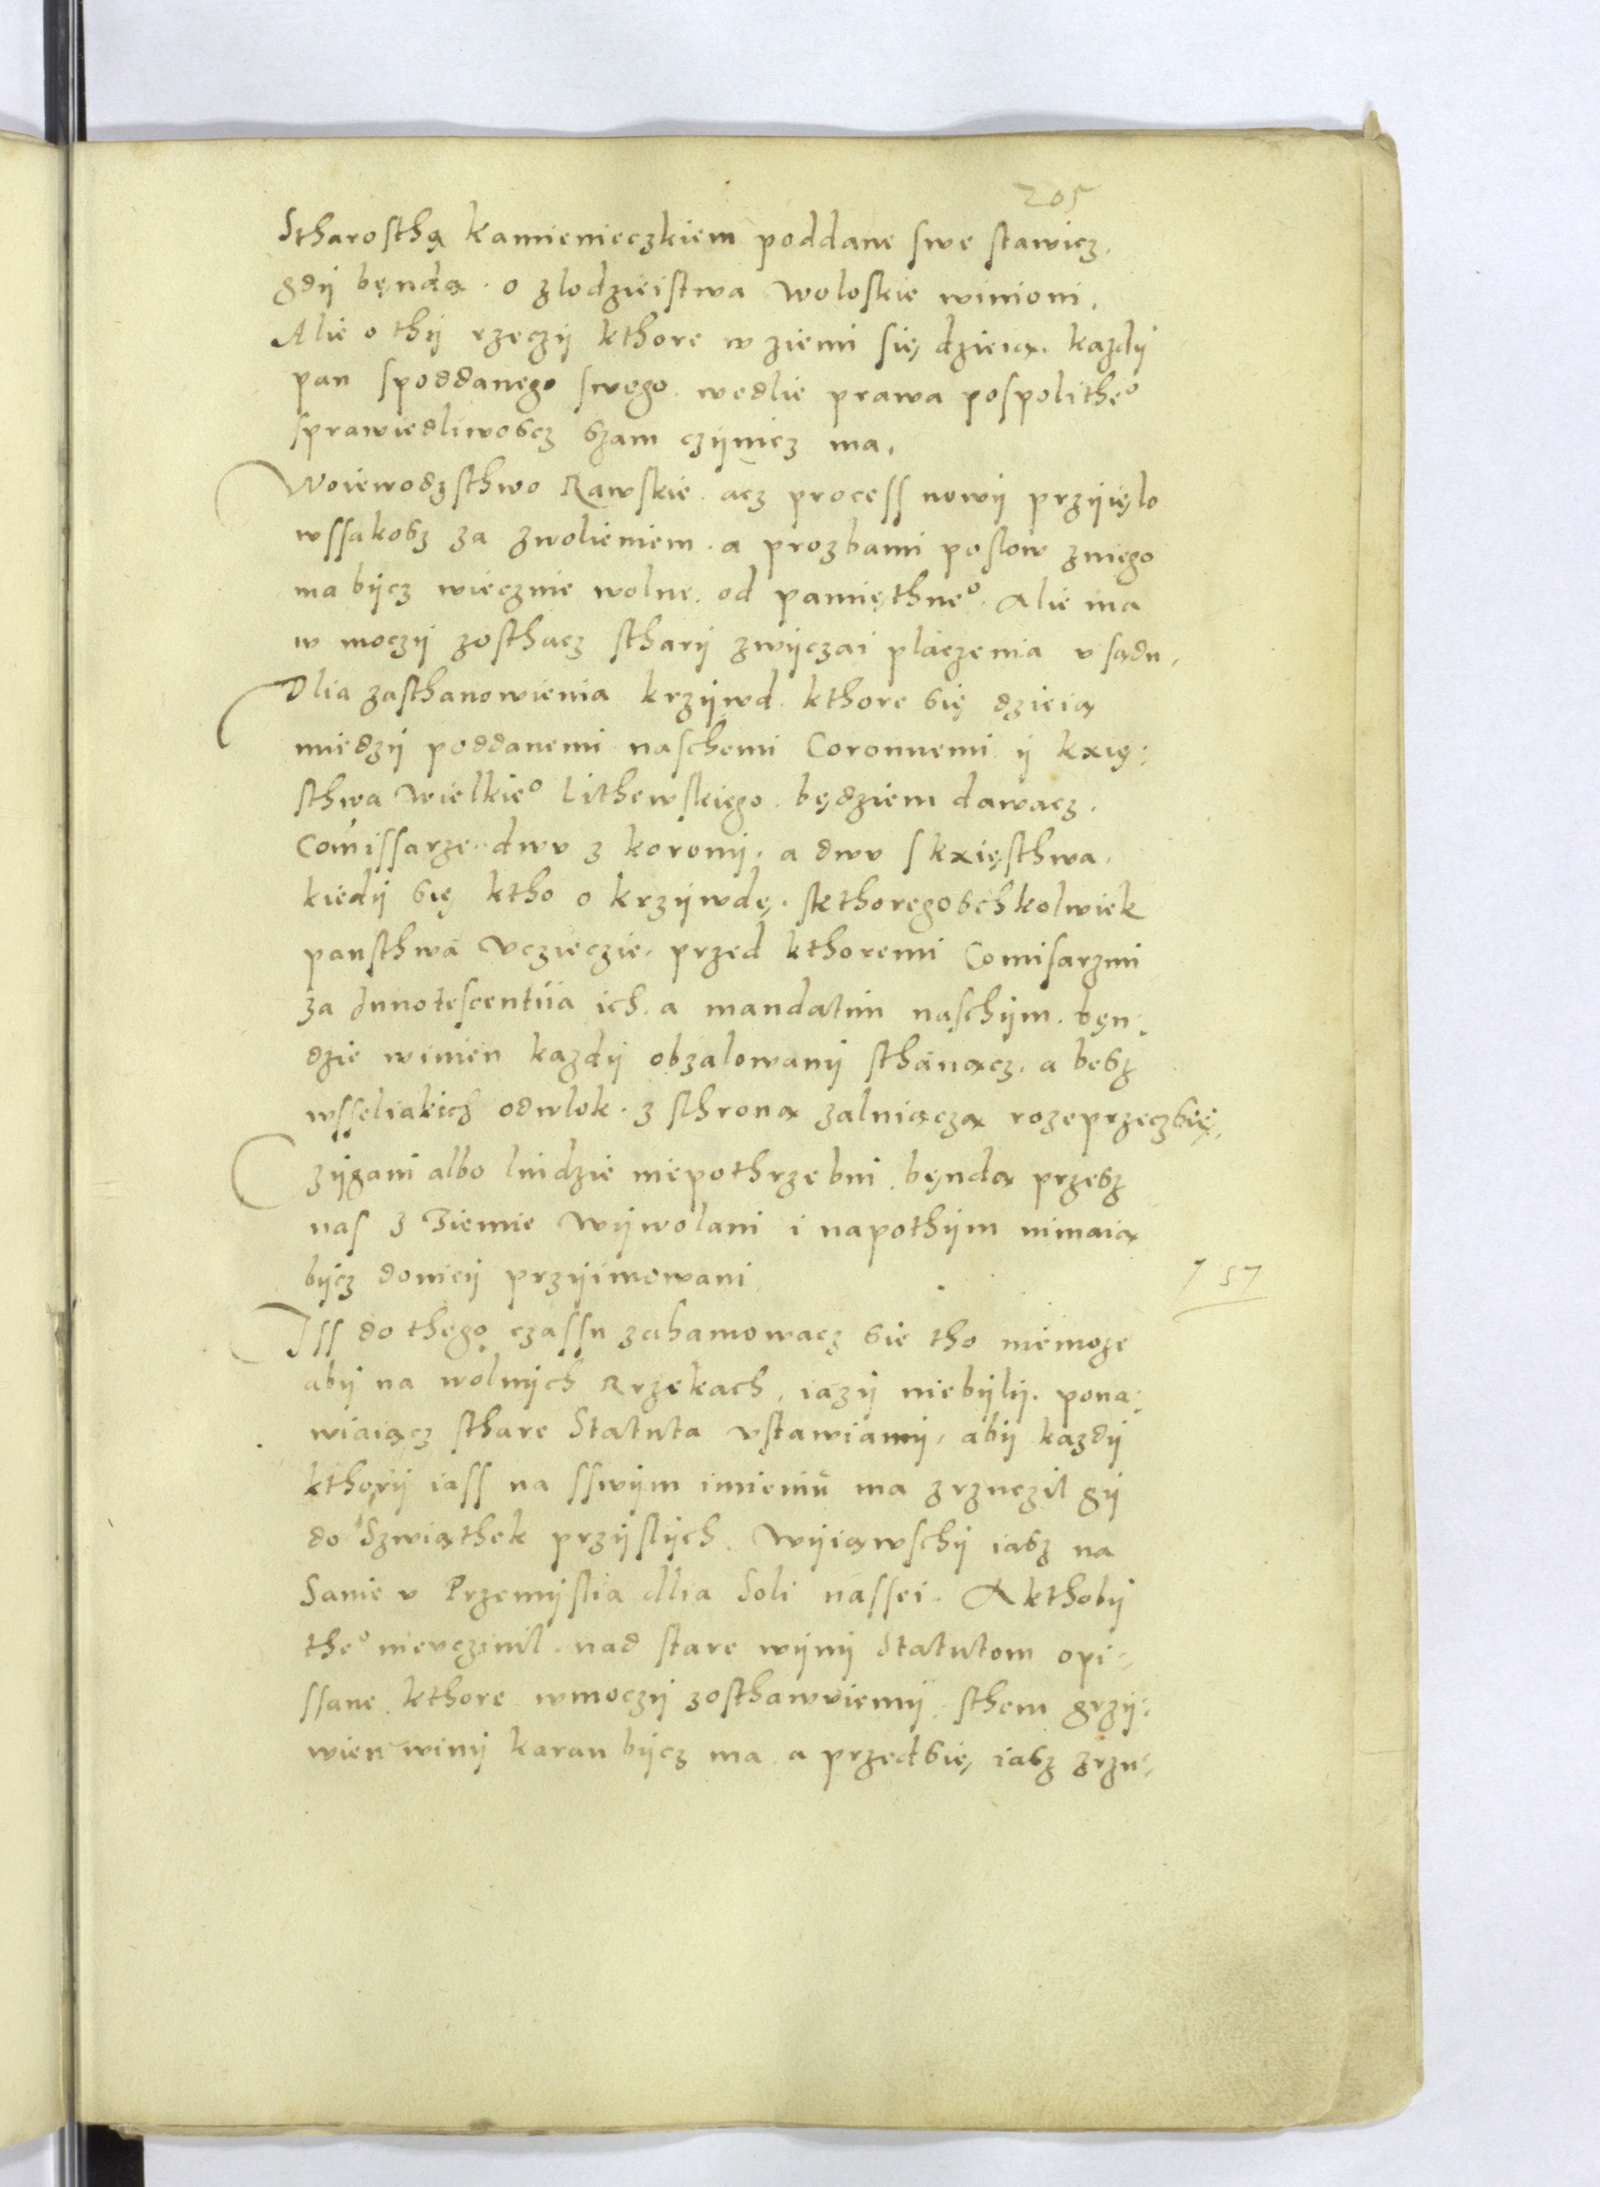 205
Stharosthą Kamienieczkiem poddane swe stawicz.
gdÿ bęndą. o zlodzieistwa woloskie winioni.
Alie o thÿ rzeczÿ kthore w ziemi się dzieią. kazdÿ
pan spoddanego swego. wedlie prawa pospolitheº
sprawiedliwoscz szam czÿnicz ma.
Woiewodzsthwo Rawskie. acz process nowÿ przÿięlo
wssakosz za zwolieniem. a prozbami poslow zniego
ma bÿcz wiecznie wolne. od pamięthneº. Alie ma
w moczÿ zosthacz stharÿ zwÿczai placzenia v sądu.
Dlia zasthanowienia krzÿwd. kthore się dzieią
miedzÿ poddanemi naschemi Coronnemi ÿ kxię:
sthwa wielkieº Lithewskiego. będziem dawacz.
Comissarze. dwv z koronÿ. a dwv s kxięsthwa.
kiedÿ się ktho o krzÿwdę. skthoregoschkolwiek
pansthwa vczieczie. przed kthoremi Comisarzmi
za Innotescentiia ich. a mandatim naschÿm. bęn:
dzie winien kazdÿ obzalowanÿ sthanącz. a besz
wsseliakich odwlok. z sthroną zalniączą rozeprzeczsię.
zÿgani albo luidzie niepothrzebni. bęndą przesz
nas z Ziemie wÿwolani i napothÿm nimaią
bÿcz doniey przÿimowani.
7 57
Iss do thego czassu zahamowacz sie tho niemoze
abÿ na wolnÿch Rrzekach, iazÿ niebÿlÿ. pona:
wiaiącz sthare Statuta vstawiamÿ, abÿ kazdÿ
kthorÿ iass na sswÿm imieniu ma zrzuczil gÿ
do Szwiąthek przÿslÿch. Wÿiąwschÿ iasz na
Sanie v Przemÿslia dlia Soli nassei. A kthobÿ
theº nievczinil. nad stare wÿnÿ Statutom opi:
ssane. kthore wmoczÿ zosthawuiemÿ. sthem grzÿ:
wien winÿ karan bÿcz ma. a przedsię iasz zrzu: